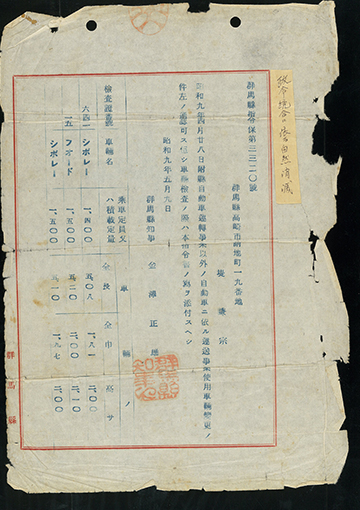 企合統合ニ當自然消滅
群馬縣指令保第三三二〇號
群馬縣高崎市新地町一九番地
堤
宗
昭和九年四月廿八日附縣自動車運轉事業以外ノ自動車ニ依ル運送事業使用車輛變更ノ
件左ノ通認可ス但シ車輛檢査ノ際ハ本指令書ノ寫ヲ添付スヘシ
昭和九年五月九日
群馬縣知事 金澤正雄
檢査證番號 車輛名 乘車定員又ハ積載定量 車輛ノ 全長 全巾 高サ
六四一 シボレー 一、四〇〇 五、〇八 一、八一 二、〇〇
一五 フオード 一、五〇〇 五、二〇 二、〇〇 二、一〇
シボレー 一、五〇〇 五、一〇 一、九七 二、〇〇
群馬縣